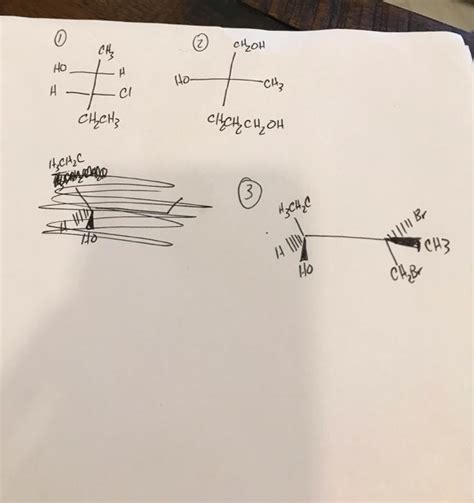 ①
CH₃
HO H
H Cl
CH₂CH₃
②
CH₂OH
HO CH₃
CH₂CH₂CH₂OH
H₃CH₂C
H
HO
③
H₃CH₂C
H
HO
Br
CH3
CH₂Br